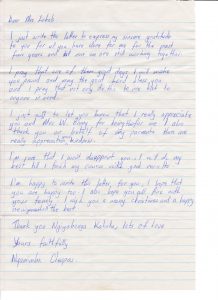 Dear Mrs
I just write this letter to express my sincere gratitude
to you for all you have done for me for the past
four years and but now we are still working together.
I pray that one of these good days I will make
you proud and may the good Lord bless you
and I pray that not only this to me but to
anyone in need.
I just want to let you know that I really appreciate
you and Miss for being there for me I also
thank you on behalf of my parents them are
really appreciating kindness.
I'm sure that I won't disappoint you, I will do my
best till I finish my course with good results
I'm happy to write this letter for you, I hope that
you are happy too. I also hope you all fine with
your family. I wish you a merry christmas and a happy
new year all the best.
Thank you lots of love
Yours faithfully